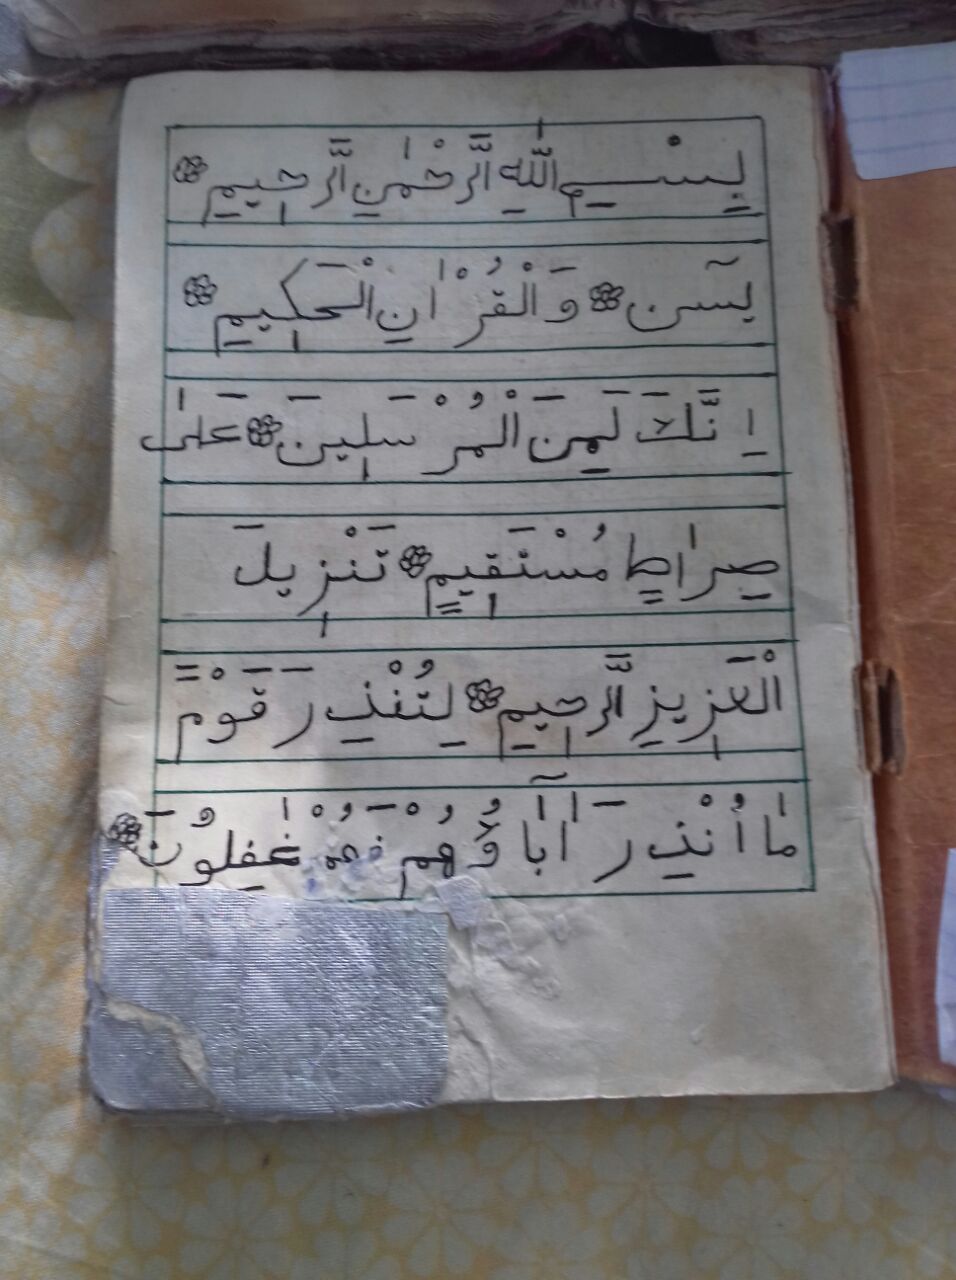 بِسْمِ اللّٰهِ الرَّحْمٰنِ الرَّحِيْمِ
يٰسٓن وَالْقُرْاٰنِ الْحَكِيْمِ
اِنَّكَ لَمِنَ الْمُرْسَلِيْنَ عَلٰى
صِرَاطٍ مُسْتَقِيْمٍ تَنْزِيْلَ
الْعَزِيْزِ الرَّحِيْمِ لِتُنْذِرَ قَوْمًا
مَا اُنْذِرَ اٰبَاؤُهُمْ فَهُمْ غٰفِلُوْنَ